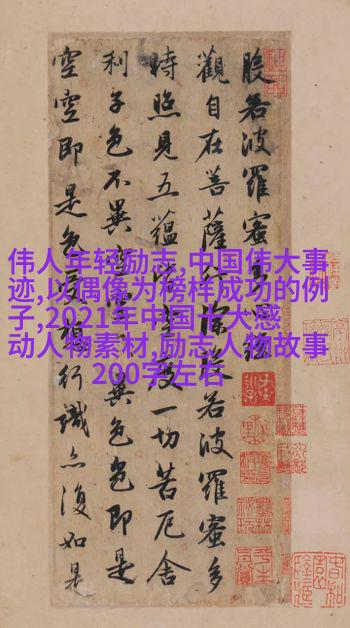 般若波羅蜜多心經
觀自在菩薩行深般若波羅蜜多
時照見五蘊皆空度一切苦厄舍
利子色不異空空不異色色即是
空空即是色受想行識亦復如是
伟人年轻励志,中国伟大事
迹,以偶像为榜样成功的例
子,2021年中国十大感
动人物素材,励志人物故事
200字左右